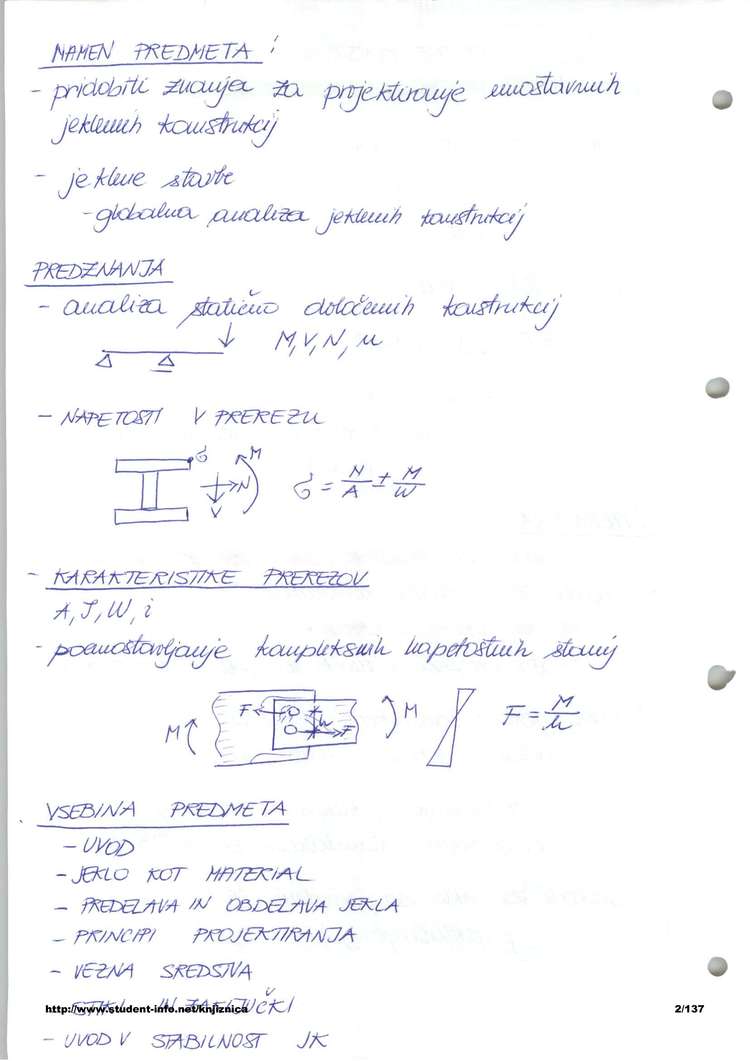 NAMEN PREDMETA :
- pridobiti znanja za projektiranje enostavnih
jeklenih konstrukcij
- jeklene stavbe
- globalna analiza jeklenih konstrukcij
PREDZNANJA
- analiza statično določenih konstrukcij
M, V, N, u
- NAPETOSTI V PREREZU
σ M
N
V
σ = N/A ± M/W
- KARAKTERISTIKE PREREZOV
A, J, W, i
- poenostavljanje kompleksnih napetostnih stanj
M F h F M
F = M/h
VSEBINA PREDMETA
- UVOD
- JEKLO KOT MATERIAL
- PREDELAVA IN OBDELAVA JEKLA
- PRINCIPI PROJEKTIRANJA
- VEZNA SREDSTVA
- STIKI IN ZAKLJUČKI
http://www.student-info.net/knjiznica 2/137
- UVOD V STABILNOST JK